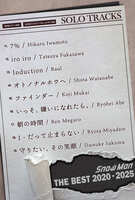 SOLO TRACKS
7% / Hikaru Iwamoto
iro iro / Tatsuya Fukazawa
Induction / Raul
オトノナルホウヘ / Shota Watanabe
ファインダー / Koji Mukai
いっそ、嫌いになれたら。 / Ryohei Abe
朝の時間 / Ren Meguro
1・だって止まらない / Ryota Miyadate
守りたい、その笑顔 / Daisuke Sakuma
Snow Man
THE BEST 2020-2025